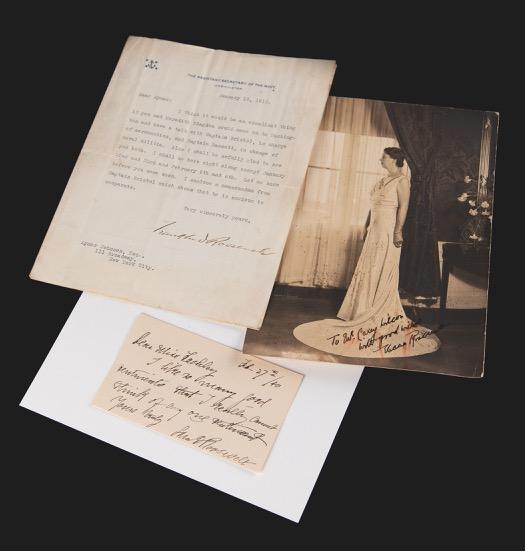 THE ASSISTANT SECRETARY OF THE NAVY
WASHINGTON
January 13, 1915.
Dear Aymar:
I think it would be an excellent thing
if you and Meredith would come on to Washing-
ton and have a talk with Captain Bristol, in charge
of aeronautics, and Captain Bassett, in charge of
naval militia. Also I shall be awfully glad to see
you both. I shall be here right along except January
22nd and 23rd and February 5th and 6th. Let me know
before you come down. I enclose a memorandum from
Captain Bristol which shows that he is anxious to
cooperate.
Very sincerely yours,
Franklin D Roosevelt
Aymar Johnson, Esq.,
111 Broadway,
New York City.
To Mr. Carey Wilson
with good wishes
Eleanor Roosevelt
Feb. 27th
Dear Miss
I like so many good
that I really cannot
think of any one
Yours truly
Roosevelt